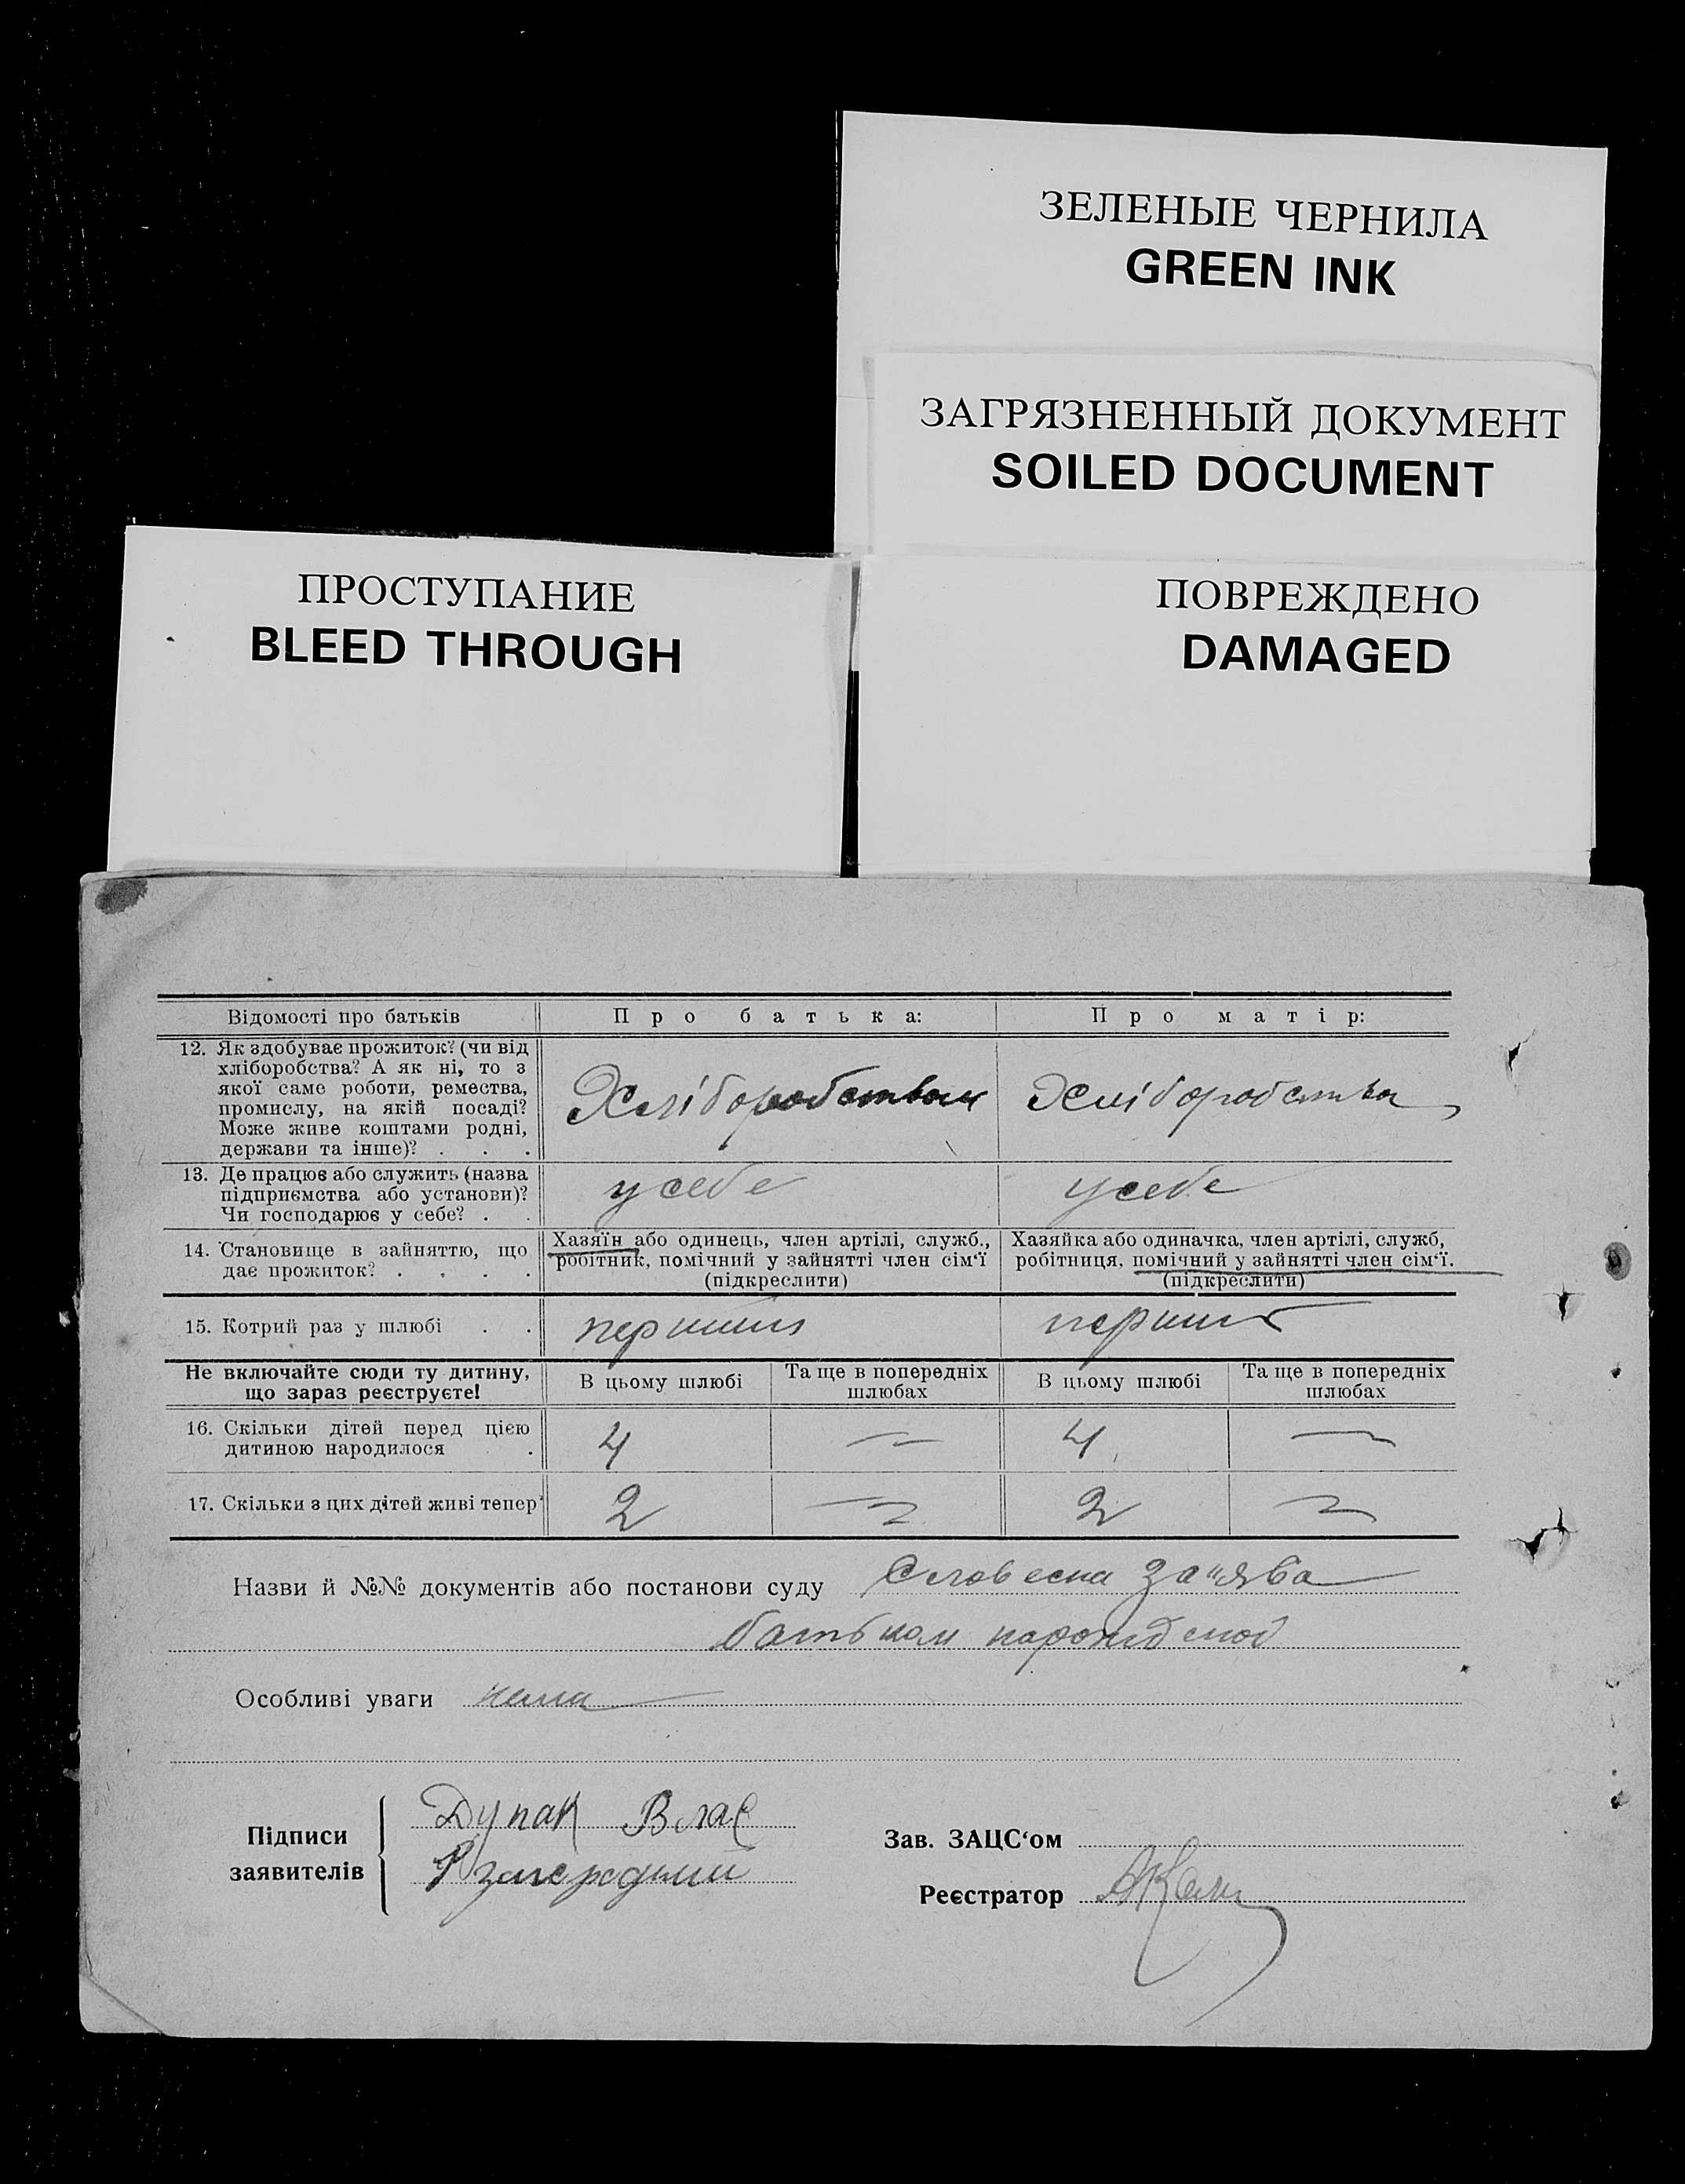 ЗЕЛЕНЫЕ ЧЕРНИЛА
GREEN INK
ЗАГРЯЗНЕННЫЙ ДОКУМЕНТ
SOILED DOCUMENT
ПРОСТУПАНИЕ
BLEED THROUGH
ПОВРЕЖДЕНО
DAMAGED
Відомості про батьків
Про батька:
Про матір:
12. Як здобуває прожиток? (чи від
хліборобства? А як ні, то з
якої саме роботи, ремества,
промислу, на якій посаді?
Може живе коштами родні,
держави та інше)? . . .
Хліборобством
Хліборобства
13. Де працює або служить (назва
підприємства або установи)?
Чи господарює у себе? . .
у себе
у себе
14. Становище в зайняттю, що
дає прожиток? . . . .
Хазяїн або одинець, член артілі, служб.,
робітник, помічний у зайнятті член сім‘ї
(підкреслити)
Хазяйка або одиначка, член артілі, служб,
робітниця, помічний у зайнятті член сім‘ї.
(підкреслити)
15. Котрий раз у шлюбі . .
перший
перший
Не включайте сюди ту дитину,
що зараз реєструєте!
В цьому шлюбі
Та ще в попередніх
шлюбах
В цьому шлюбі
Та ще в попередніх
шлюбах
16. Скільки дітей перед цією
дитиною народилося .
4 — 4 —
17. Скільки з цих дітей живі тепер
2 — 2 —
Назви й №№ документів або постанови суду Словесна за"ява
батьком народженої
Особливі уваги нема
Підписи
заявителів
Дупак Влас
Зав. ЗАЦС‘ом
Реєстратор